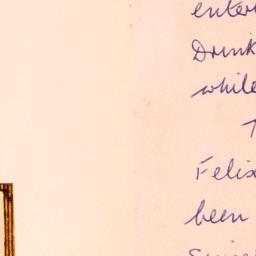 enter
Drink
while
T
Felix
been